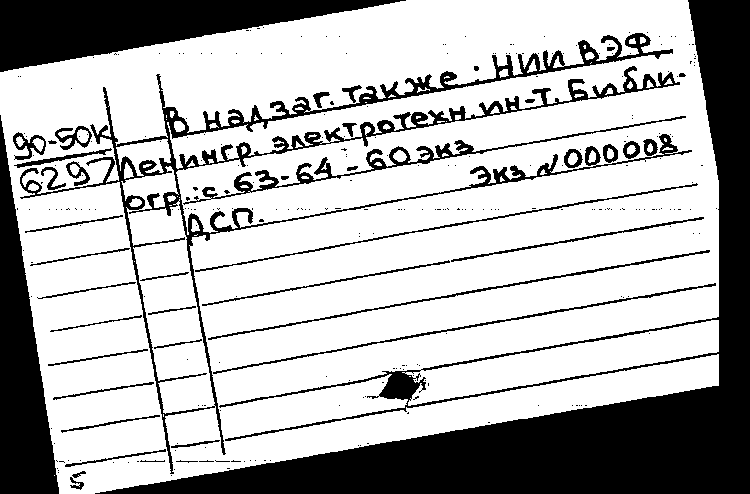 90-50к
6297
В надзаг. также: НИИ ВЭФ,
Ленингр. электротехн. ин-т. Библи-
огр.: с. 63-64 - 60 экз.
Экз. № 000008
ДСП.
5